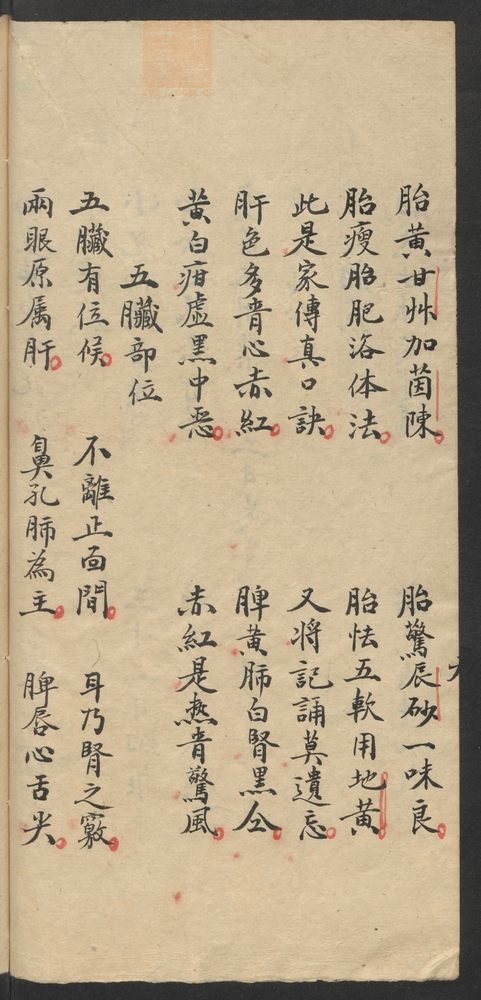 胎黄甘艸加茵陳 胎驚辰砂一味良
胎瘦胎肥浴体法 胎怯五軟用地黄
此是家傳真口訣 又將記誦莫遺忘
肝色多青心赤紅 脾黄肺白腎黒仝
黄白疳虚黒中恶 赤紅是热青驚風
五臟部位
五臟有位候 不離正面間 耳乃腎之竅
兩眼原属肝 鼻孔肺為主 脾唇心舌尖